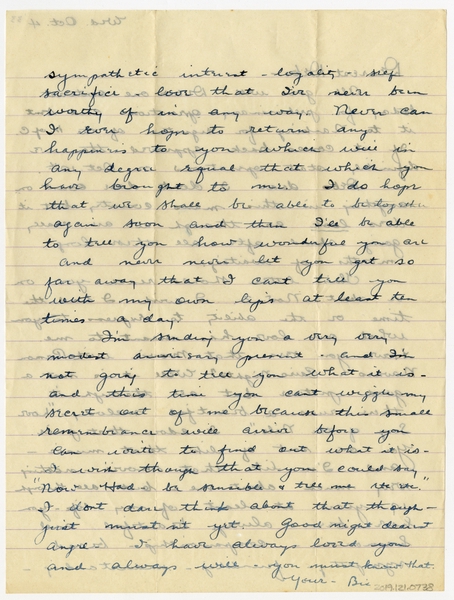 sympathetic interest - loyalty self
sacrifice love that I've never been
worthy of in any way. Never can
I ever hope to return any
happiness to you which will in
any degree equal that which you
have brought to me. I do hope
that we shall be able to be together
again soon and then I'll be able
to tell you how wonderful you are
and never never let you get so
far away that I can't tell you
with my own lips at least ten
times a day.
I'm sending you a very very
modest anniversary present and I'm
not going to tell you what it is -
and this time you can't wiggle my
secret out of me because this small
remembrance will arrive before you
can write to find out what it is -
I wish though that you could say
"Now Had be sensible & tell me
I don't dare think about that though -
just mustn't yet. Good night dearest
Angel - I have always loved you
and always will - you must know that.
Your -
2019.121.0738